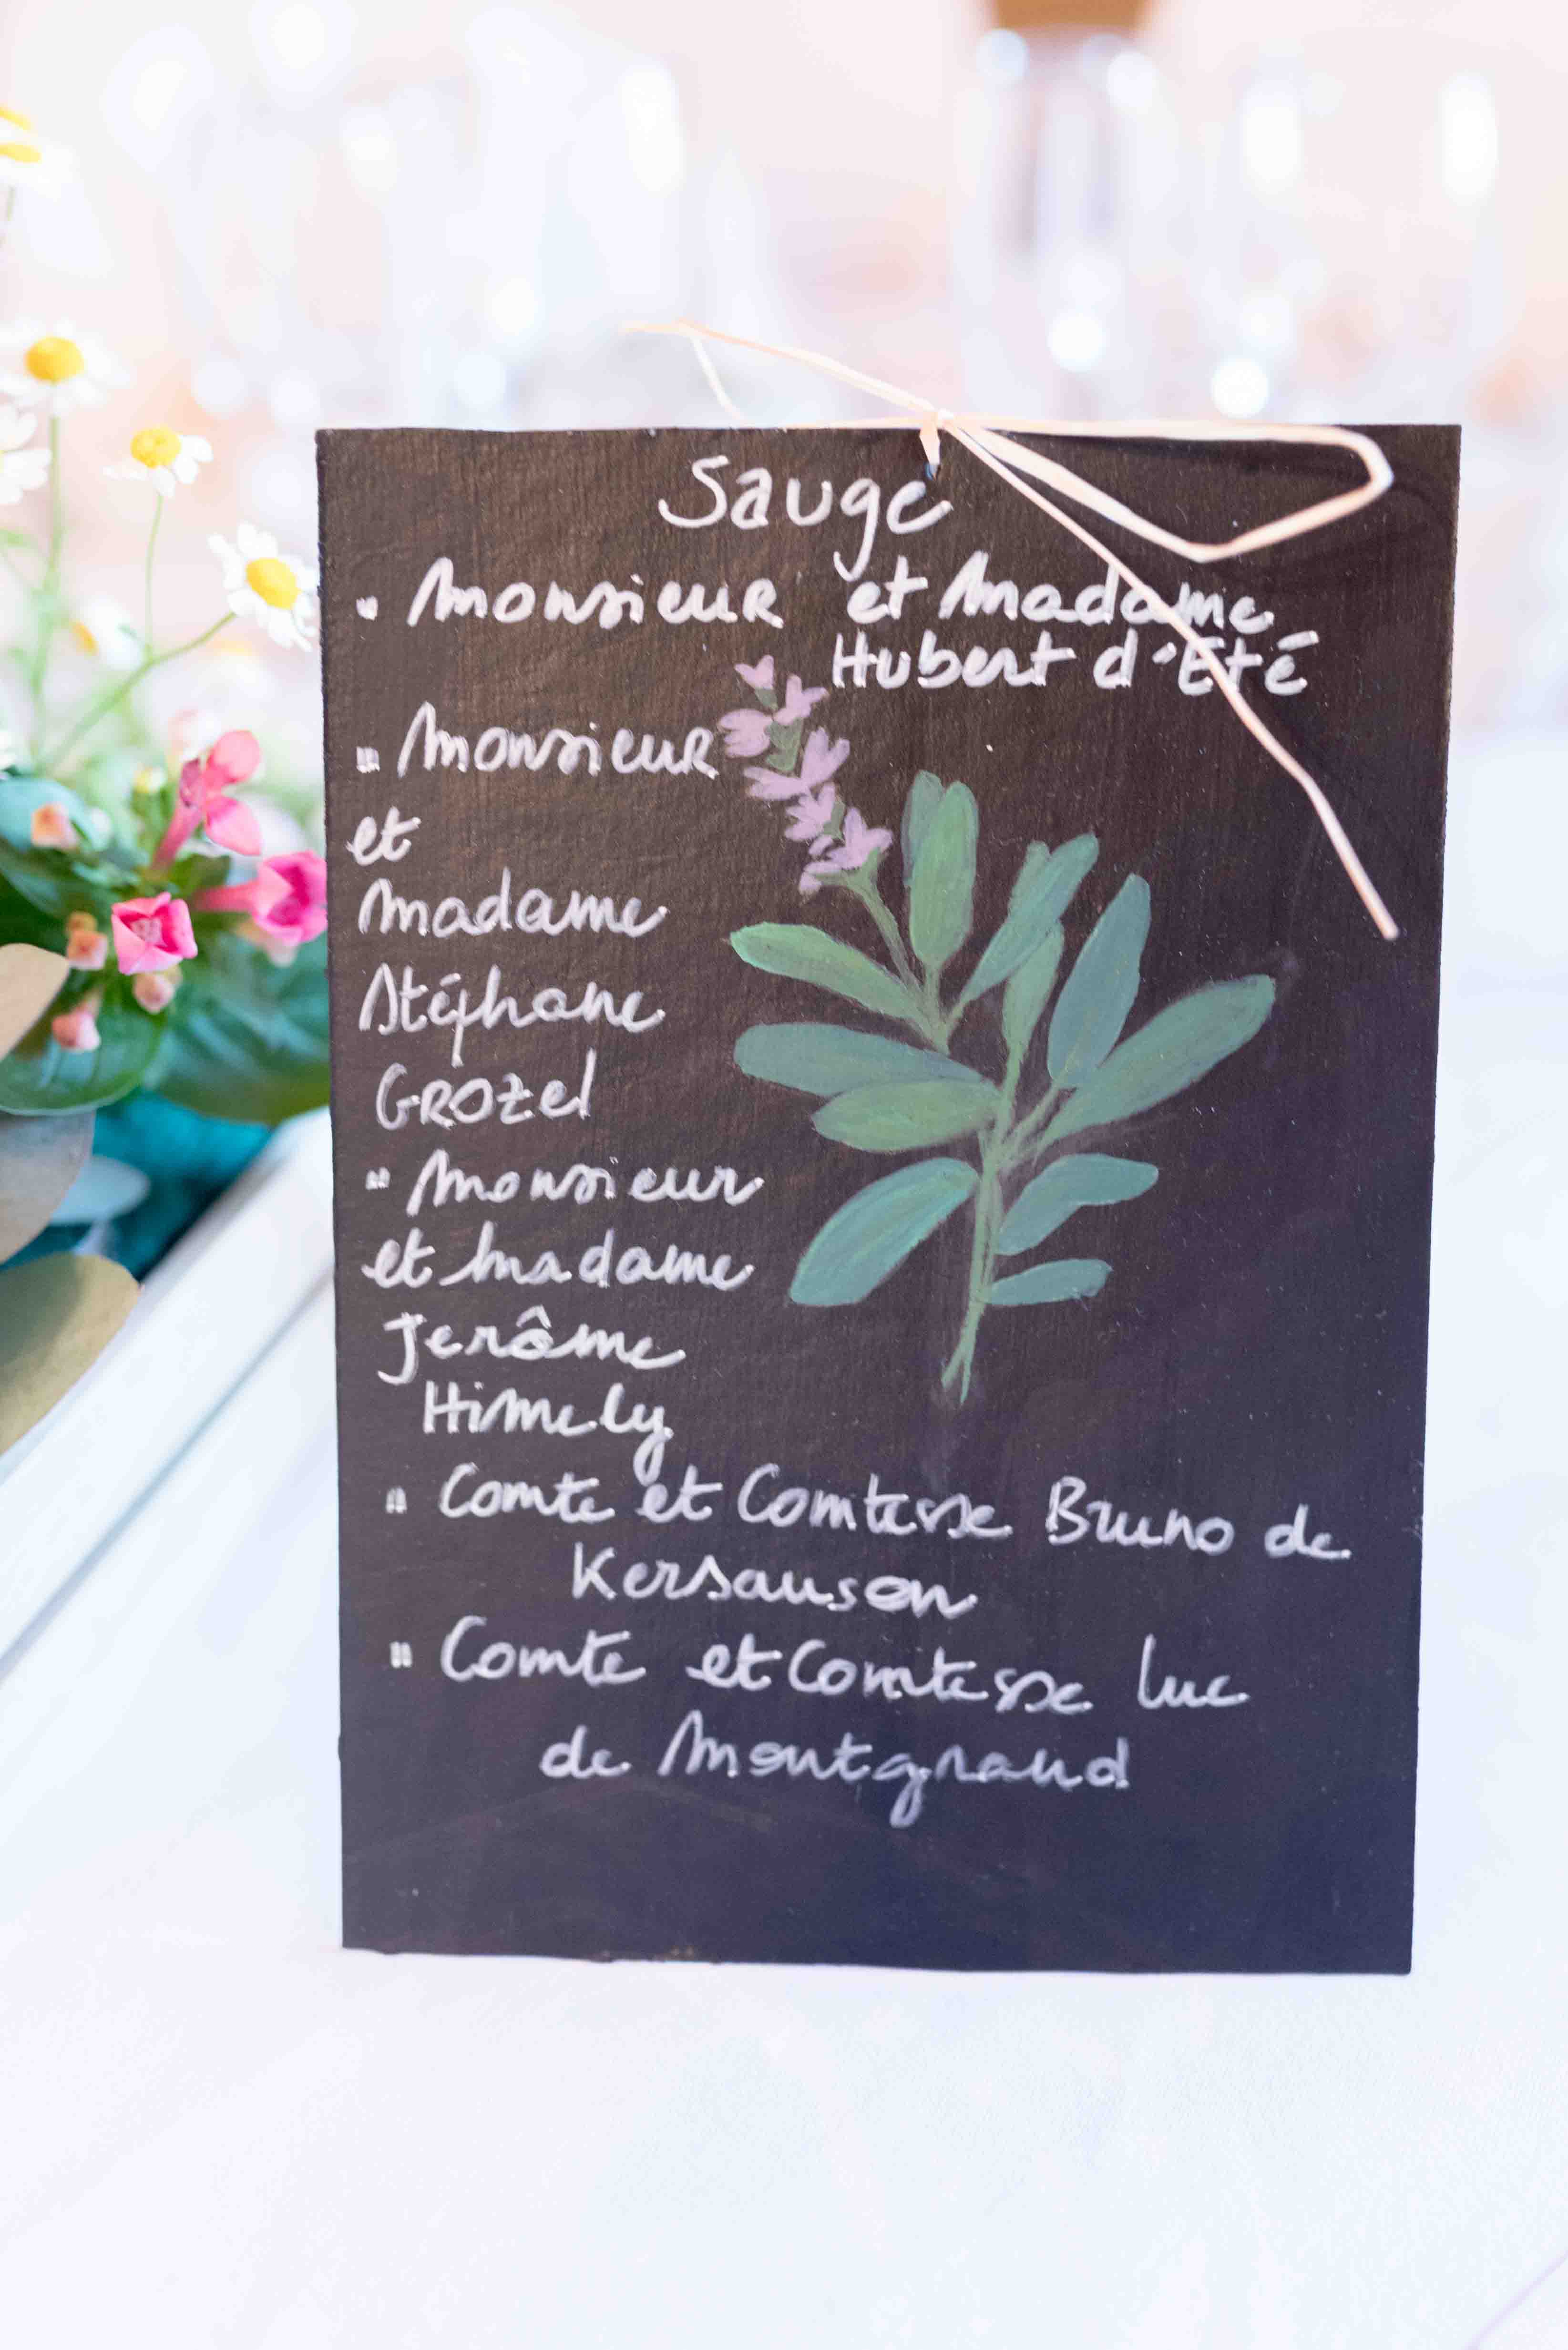 Sauge
" Monsieur et Madame
Hubert d'Eté
" Monsieur
et
Madame
Stéphane
GROZEl
" Monsieur
et Madame
Jerôme
Himely
" Comte et Comtesse Bruno de
Kersauson
" Comte et Comtesse Luc
de Montgrand